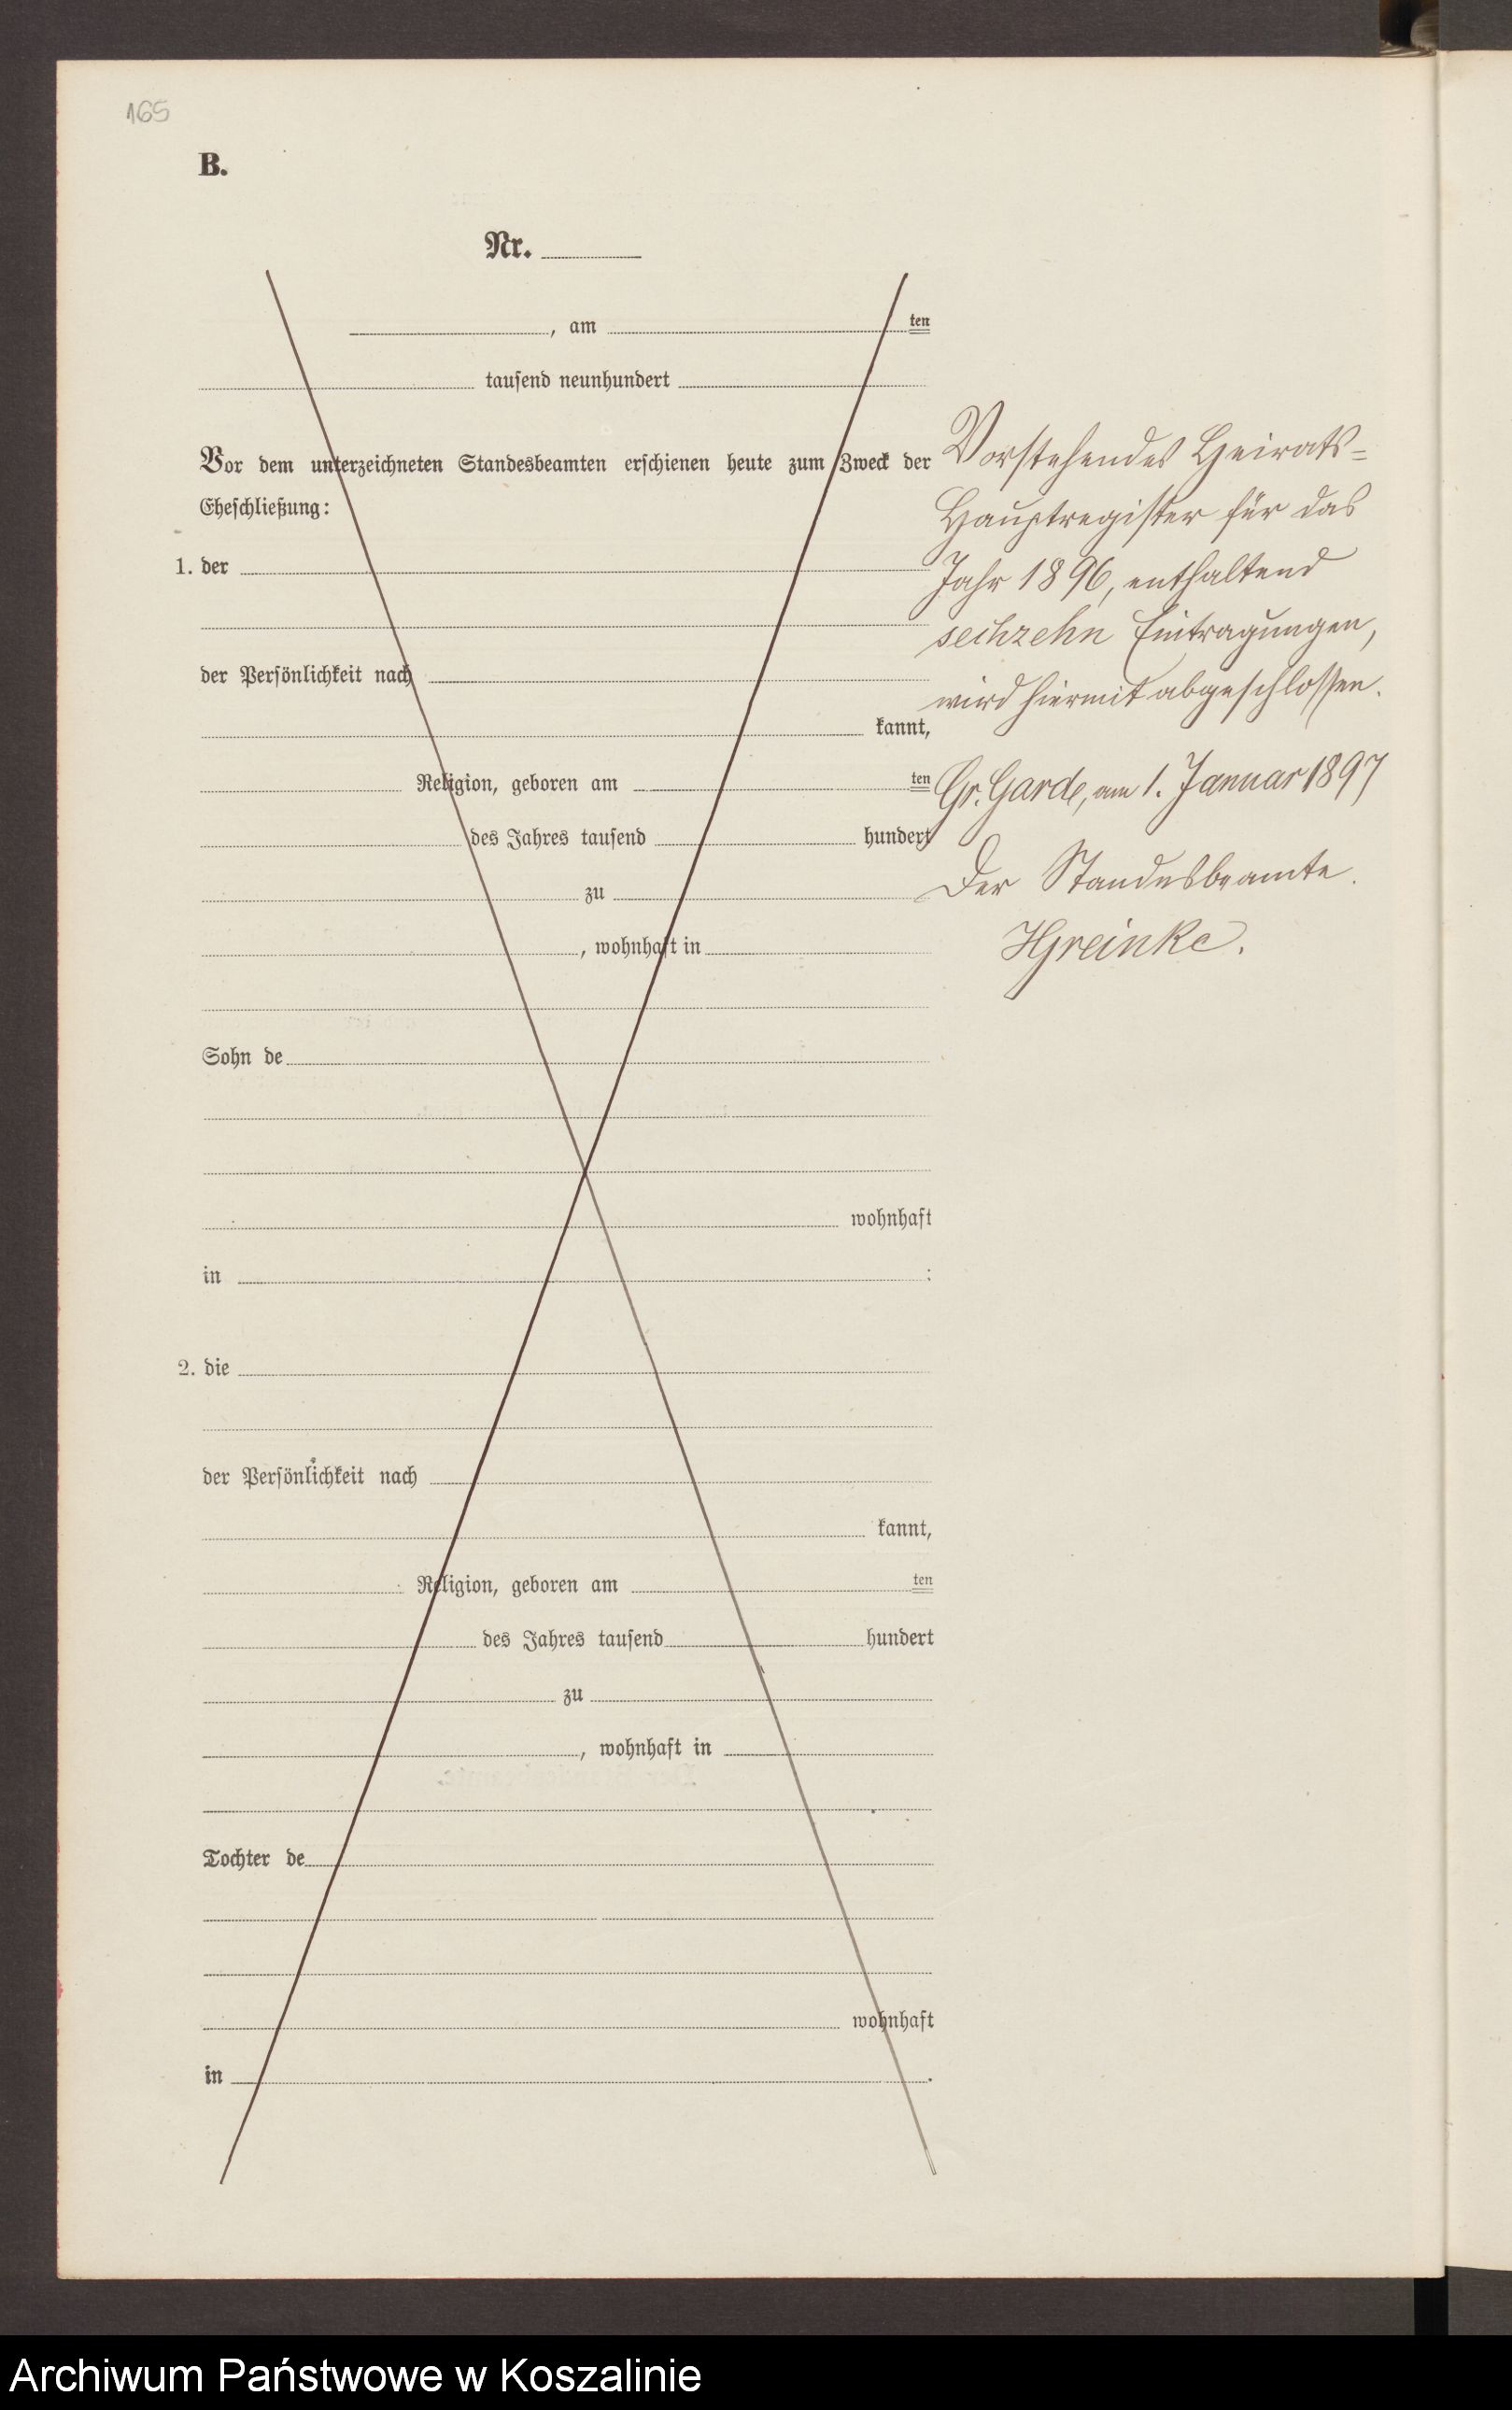 165
B.
Nr.
, am ten
tausend neunhundert
Vor dem unterzeichneten Standesbeamten erschienen heute zum Zweck der
Eheschließung:
1. der
der Persönlichkeit nach
kannt,
Religion, geboren am ten
des Jahres tausend hundert
zu
, wohnhaft in
Sohn de
wohnhaft
in :
2. die
der Persönlichkeit nach
kannt,
Religion, geboren am ten
des Jahres tausend hundert
zu
, wohnhaft in
Tochter de
wohnhaft
in .
Vorstehendes Heirats-
Hauptregister für das
Jahr 1896, enthaltend
sechzehn Eintragungen,
wird hiermit abgeschlossen.
Gr. Garde, am 1. Januar 1897
Der Standesbeamte.
Archiwum Państwowe w Koszalinie